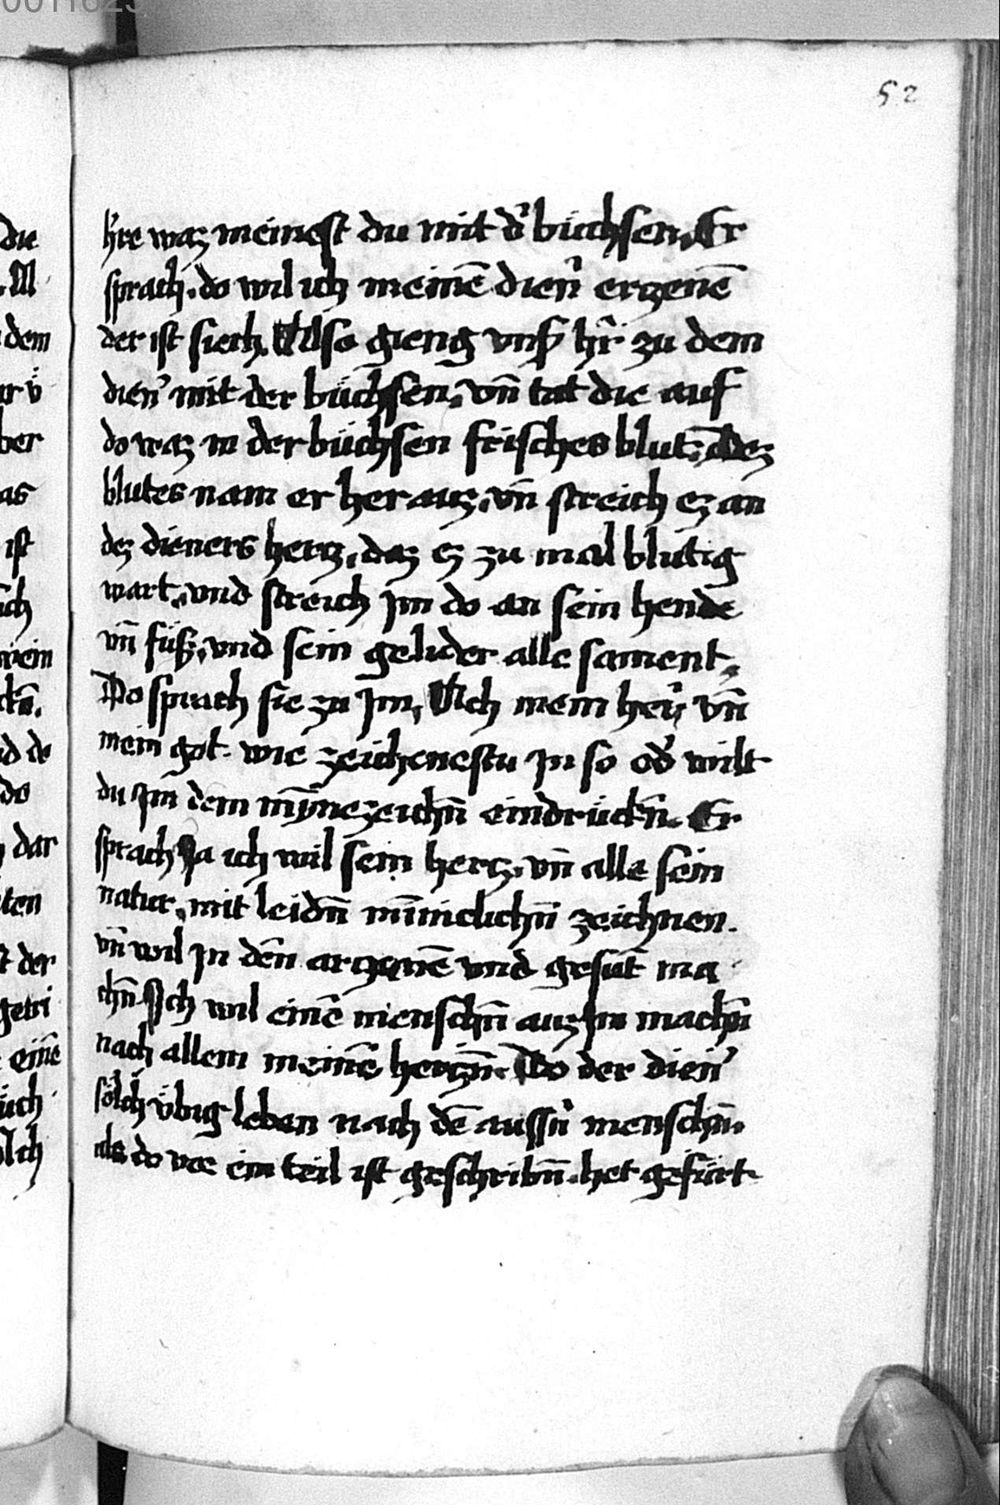 52
hˀre waz meinest du mit dˀ büchsen. Er
sprach. do wil ich meinē dienˀ erzenē
der ist siech. Also gieng vnsˀ hˀr zu dem
dienˀ mit der büchsen. vn̄ tat die auf
do waz in der büchsen frisches blut. Dez
blutes nam er her auz. vn̄ streich ez an
dez dieners hertz. daz ez zu mal blutig
wart. vnd streich Im do an sein hende
vn̄ füß. vnd sein gelider alle sament.
Do sprach sie zu Im. Ach mein herˀ vn̄
mein got. wie zeichenestu In so odˀ wilt
du Im dein mȳnezeichn̄ eindrückn̄. Er
sprach Ja ich wil sein hertz. vn̄ alle sein
natur. mit leidn̄ mīniclichn̄ zeichnen.
vn̄ wil In dēn artzenē vnd gesūt ma
chn̄ Ich wil einē menschn̄ auz Im machn̄
nach allem meinē hertzn̄. Do der dienˀ
sölch übig leben nach dē aussˀn menschn̄.
als do vor ein teil ist geschribn̄. het gefürt